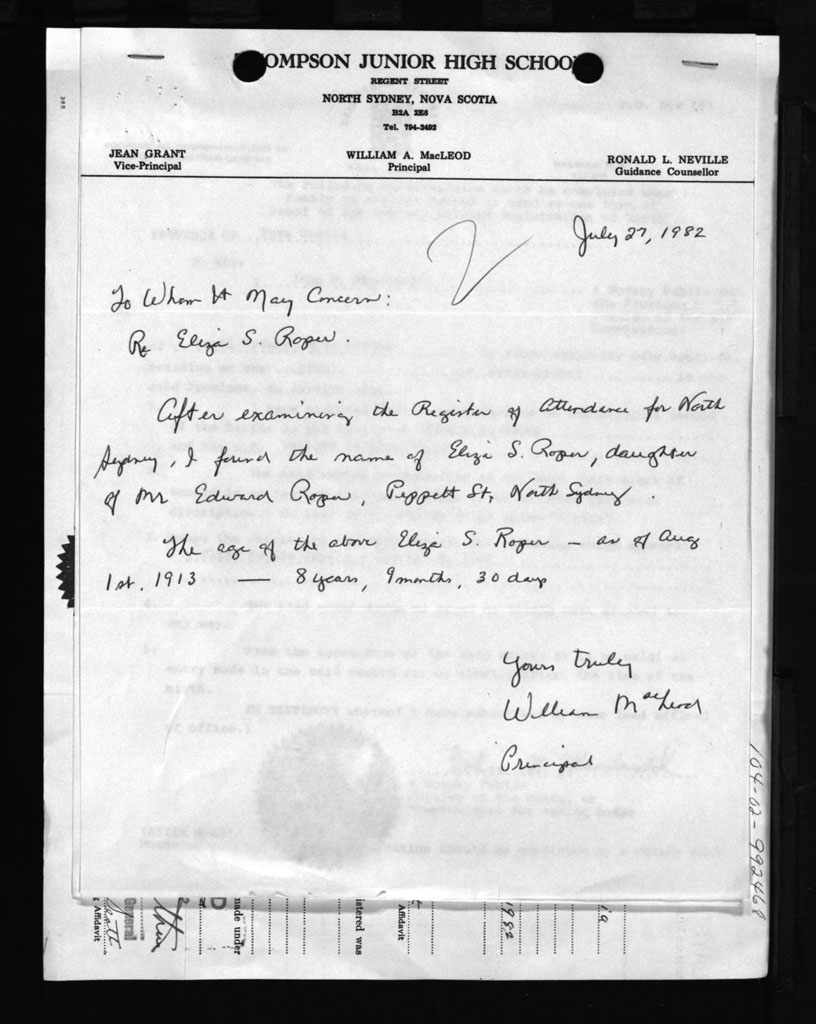 THOMPSON JUNIOR HIGH SCHOOL
REGENT STREET
NORTH SYDNEY, NOVA SCOTIA
B2A 2E6
Tel. 794-2492
JEAN GRANT
Vice-Principal
WILLIAM A. MacLEOD
Principal
RONALD L. NEVILLE
Guidance Counsellor
July 27, 1982
To Whom It May Concern:
Re Eliza S. Roper.
After examining the Register of Attendance for North
Sydney, I found the name of Eliza S. Roper, daughter
of Mr Edward Roper, Peppett St, North Sydney.
The age of the above Eliza S. Roper — as of Aug
1st. 1913 — 8 years, 9 months, 30 days
Yours truly
William MacLeod
Principal
104-02-992468
General
Affidavit
made under
istered was
Affidavit
1982